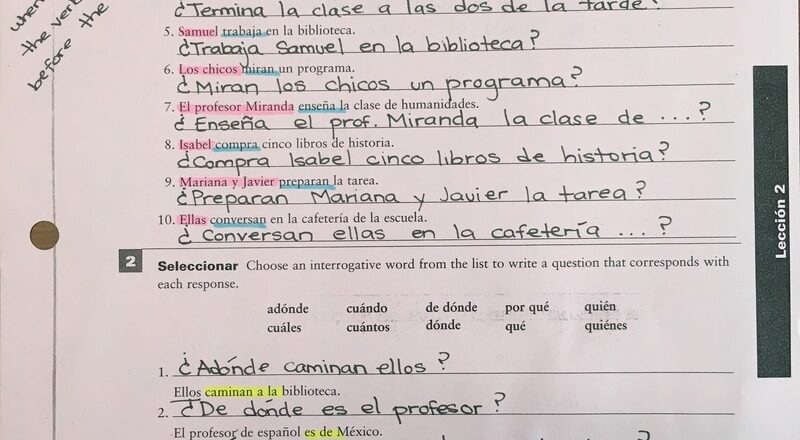 when
the verb
before the
¿Termina la clase a las dos de la tarde?
5. Samuel trabaja en la biblioteca.
¿Trabaja Samuel en la biblioteca?
6. Los chicos miran un programa.
¿Miran los chicos un programa?
7. El profesor Miranda enseña la clase de humanidades.
¿Enseña el prof. Miranda la clase de ...?
8. Isabel compra cinco libros de historia.
¿Compra Isabel cinco libros de historia?
9. Mariana y Javier preparan la tarea.
¿Preparan Mariana y Javier la tarea?
10. Ellas conversan en la cafetería de la escuela.
¿Conversan ellas en la cafetería ...?
Lección 2
2 Seleccionar Choose an interrogative word from the list to write a question that corresponds with
each response.
adónde cuándo de dónde por qué quién
cuáles cuántos dónde qué quiénes
1. ¿Adónde caminan ellos?
Ellos caminan a la biblioteca.
2. ¿De dónde es el profesor?
El profesor de español es de México.
?